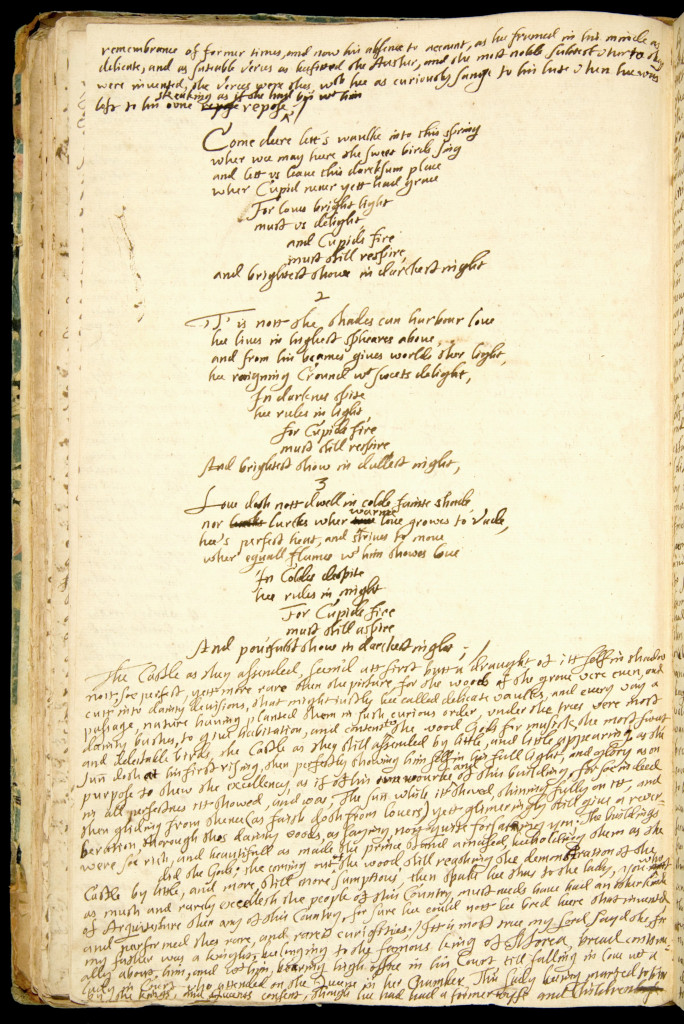 remembrance of former times, and now his absence to account, as hee framed in his minde as
delicate, and as sutable verces as beefitted the Auther, and the most noble subiect
were invented, the verces were thes, wch hee as curiously sange to his lute when hee was
left to his owne repose /
speaking as if she had bin wt him
Come deere lett's waulke into this spring
wher wee may heere the sweet birds sing
and lett us leave this darcksum place
wher Cupid never yett had grace
For loves bright light
must us delight
and Cupids fire
must still respire,
and brightest showe in darckest night
2
T' is nott the shades can harbour love
hee lives in highest spheares above,
and from his beames gives worlds ther light,
his raigning Crouned wt sweets delight,
In darknes spite
hee rules in light,
for Cupids fire
must still respire
And brightest show in dullest night,
3
Love doth nott dwell in colde fainte shade,
nor lurckes wher warme love growes to vade,
hee's perfect heat, and strives to move
wher equall flames wt him showes love
In Coldes despite
hee rules in night
For Cupids fire
must still aspire
And powrfulst show in darckest night; /
The Castle as they assended, seem'd att first butt a draught of itt self in shadow
nott soe perfect, yett more rare then the picture, for the woods of the grove were even, and
cutt into dainty devisions, that might iustly bee called delicate vaultes, and every way a
passage, nature having planted them in such curious order, under the trees were most
dainty bushes, to give habitation, and content to the wood Gods for musick the most sweet
and delectable birds, the Castle as they still assended by little, and little appearing as the
sun doth att his first rising, then perfectly showing him self in his full light, and glory as on
purpose to shew the excellency, as if of his owne and worcke of this building, for soe indeed
in all perfectnes itt showed, and was; The sun while itt showed shinning fully on itt, and
then gliding from thence (as farish doth from lovers) yett glimeringly still give a rever¬
beration through thos dainty woods, as saying, nott quite forsaking you. The buildings
were soe rich, and beautifull as made the prince stand amased, beeholding them as the
did the Gods; the coming out of the wood still reaching the demonstration of the
Castle by little, and more, still more sumptious, then spake hee thus to the lady, you who
as much and rarely exceed the people of this Country must needs have had an other kinde
of Arquiteture then any of this Country, for sure hee could nott bee bred heere that invented
and performed thes rare, and rarest curiosities; Itt is most true my Lord sayd she, for
my father was a knight beelonging to the famous king of Morea, breed continu¬
ally about him, and wt him, bearing high office in his Court till falling in love wt a
lady in Court who attended on the Queene in her Chamber, This lady beeing maried to him
by the kings, and Queens consent, though hee had had a former wyfe and Children by